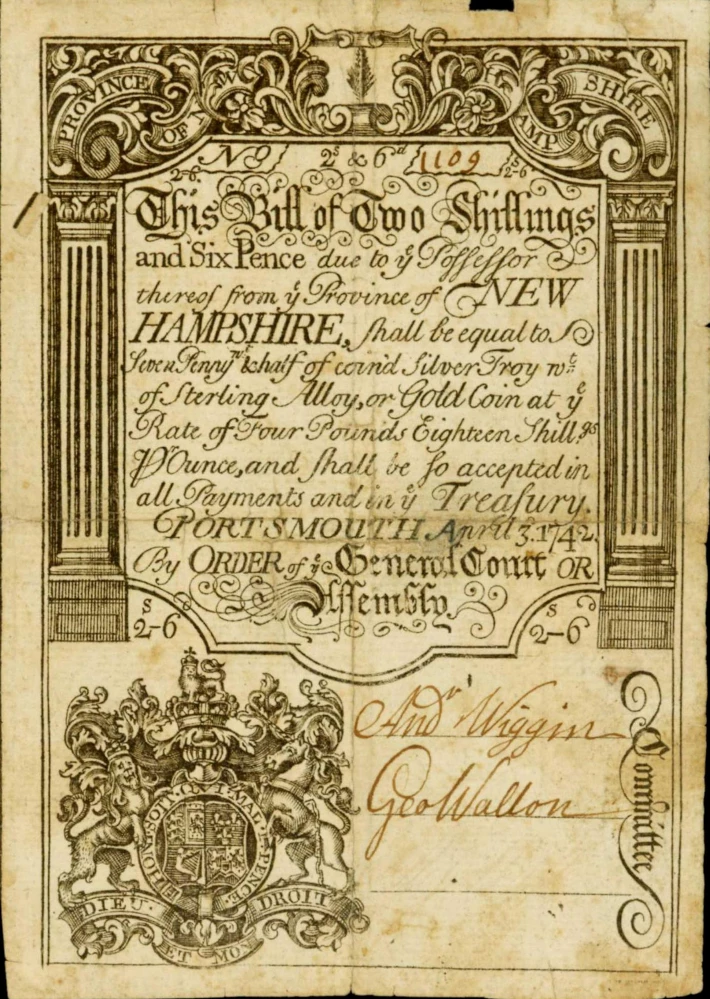 PROVINCE OF NEW HAMPSHIRE
No 2s & 6d 1109
2-6 2s-6
This Bill of Two Shillings
and Six Pence due to ye Possessor
thereof from ye Province of NEW
HAMPSHIRE, shall be equal to
Seven Penny wt & half of coin'd Silver Troy wt
of Sterling Alloy, or Gold Coin at ye
Rate of Four Pounds Eighteen Shill.gs
P Ounce, and shall be so accepted in
all Payments and in ye Treasury.
PORTSMOUTH April 3. 1742.
By ORDER of ye General Court OR
Assembly
2s-6 2s-6
Andr Wiggin
Geo Walton
Committee
HONI SOIT QUI MAL Y PENCE
DIEU ET MON DROIT